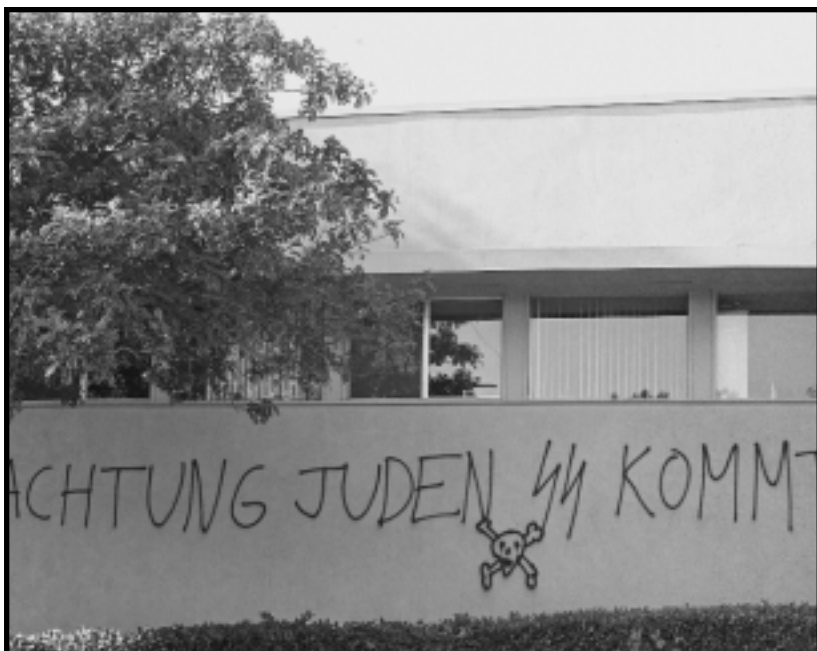 ACHTUNG JUDEN SS KOMMT